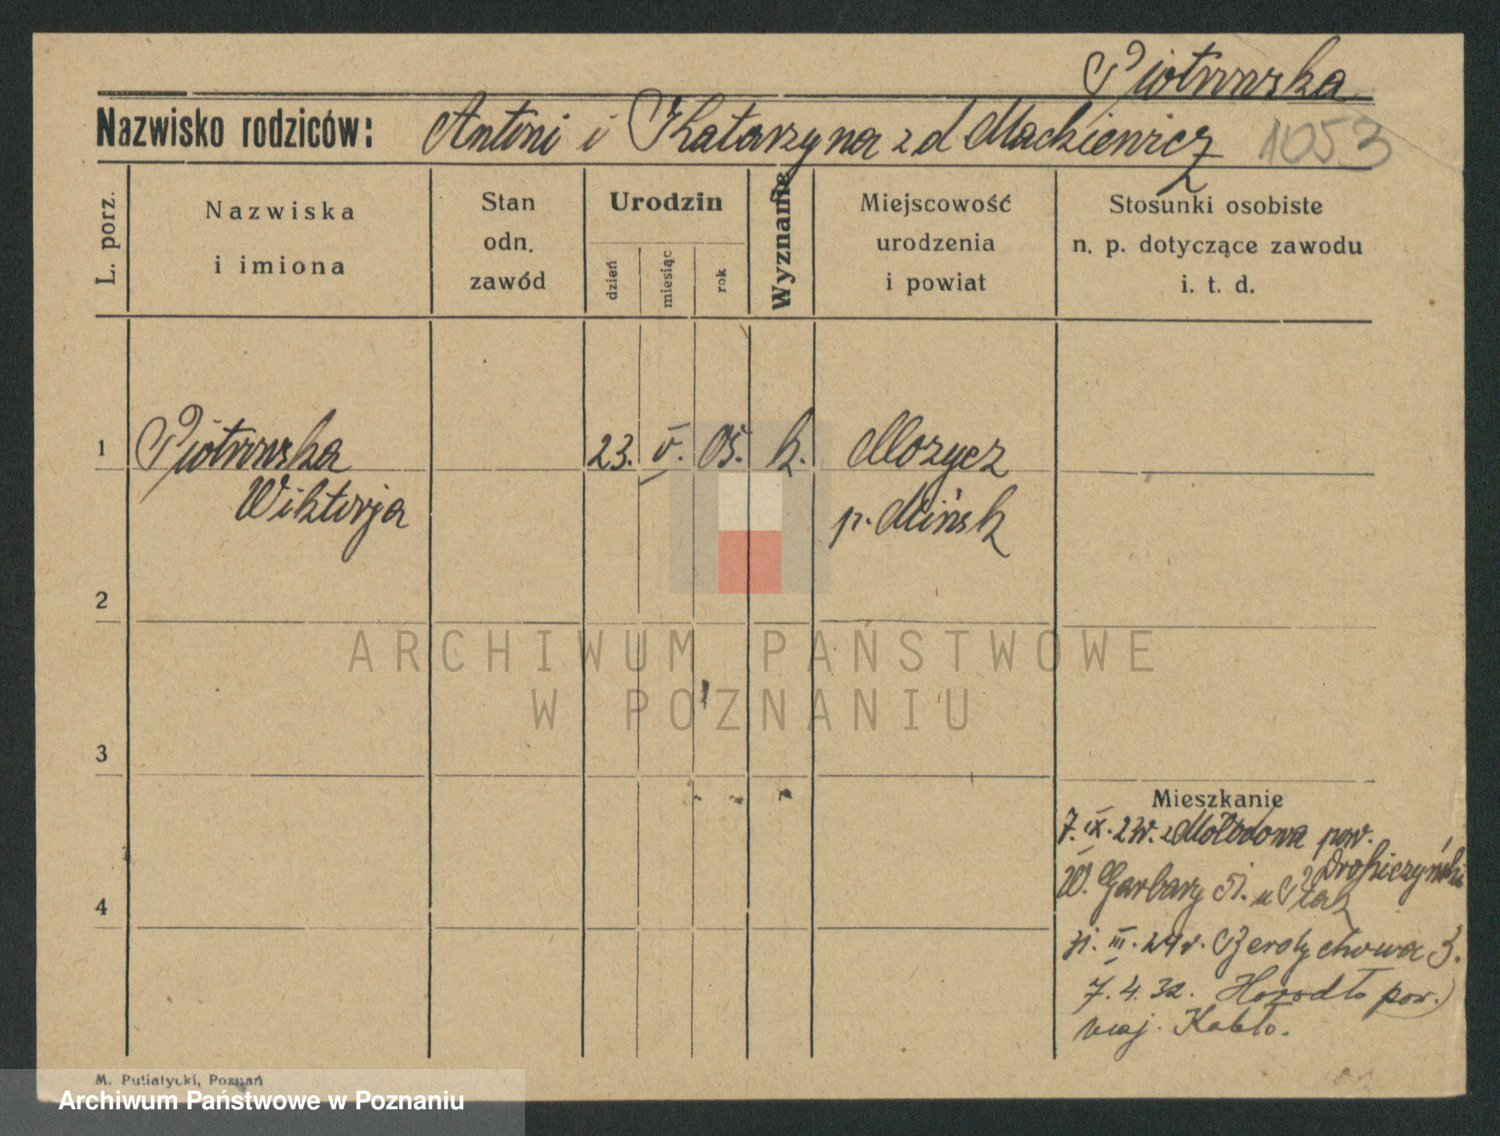 Piotrowska
Nazwisko rodziców: Antoni i Katarzyna z d Mackiewicz 1053
L. porz.
Nazwiska
i imiona
Stan
odn.
zawód
Urodzin
dzień
miesiąc
rok
Wyznanie
Miejscowość
urodzenia
i powiat
Stosunki osobiste
n. p. dotyczące zawodu
i. t. d.
1 Piotrowska 23. V. 05. k. Mozycz
Wiktorja p. Mińsk
2
3
4
Mieszkanie
7. IX. 23r. z Mołodowa pow.
Drohiczyński
W. Garbary 51. u Ptak
31. III. 24r. 3.
7. 4. 32. Horodło pow.)
maj.
M. Putiatycki, Poznań
ARCHIWUM PAŃSTWOWE
W POZNANIU
Archiwum Państwowe w Poznaniu